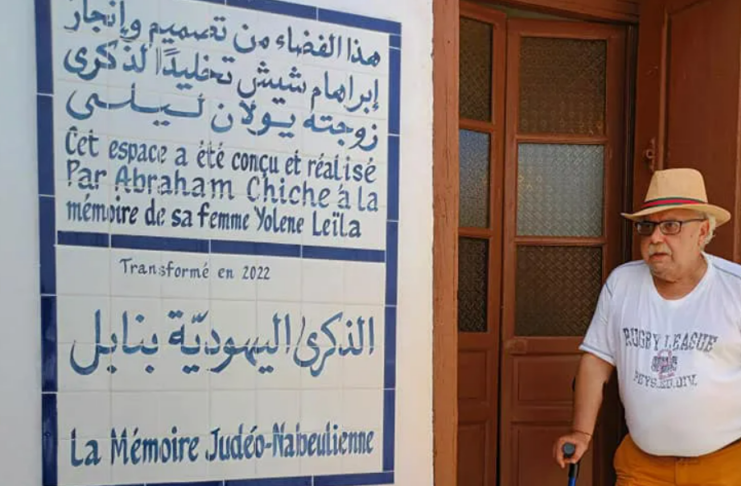 هذا الفضاء من تصميم وإنجاز
إبراهام شيش تخليدًا لذكرى
زوجته يولان ليلى
Cet espace a été conçu et réalisé
Par Abraham Chiche à la
mémoire de sa femme Yolene Leïla
Transformé en 2022
الذكرى اليهوديّة بنابل
La Mémoire Judéo-Nabeulienne
RUGBY LEAGUE
DIV.